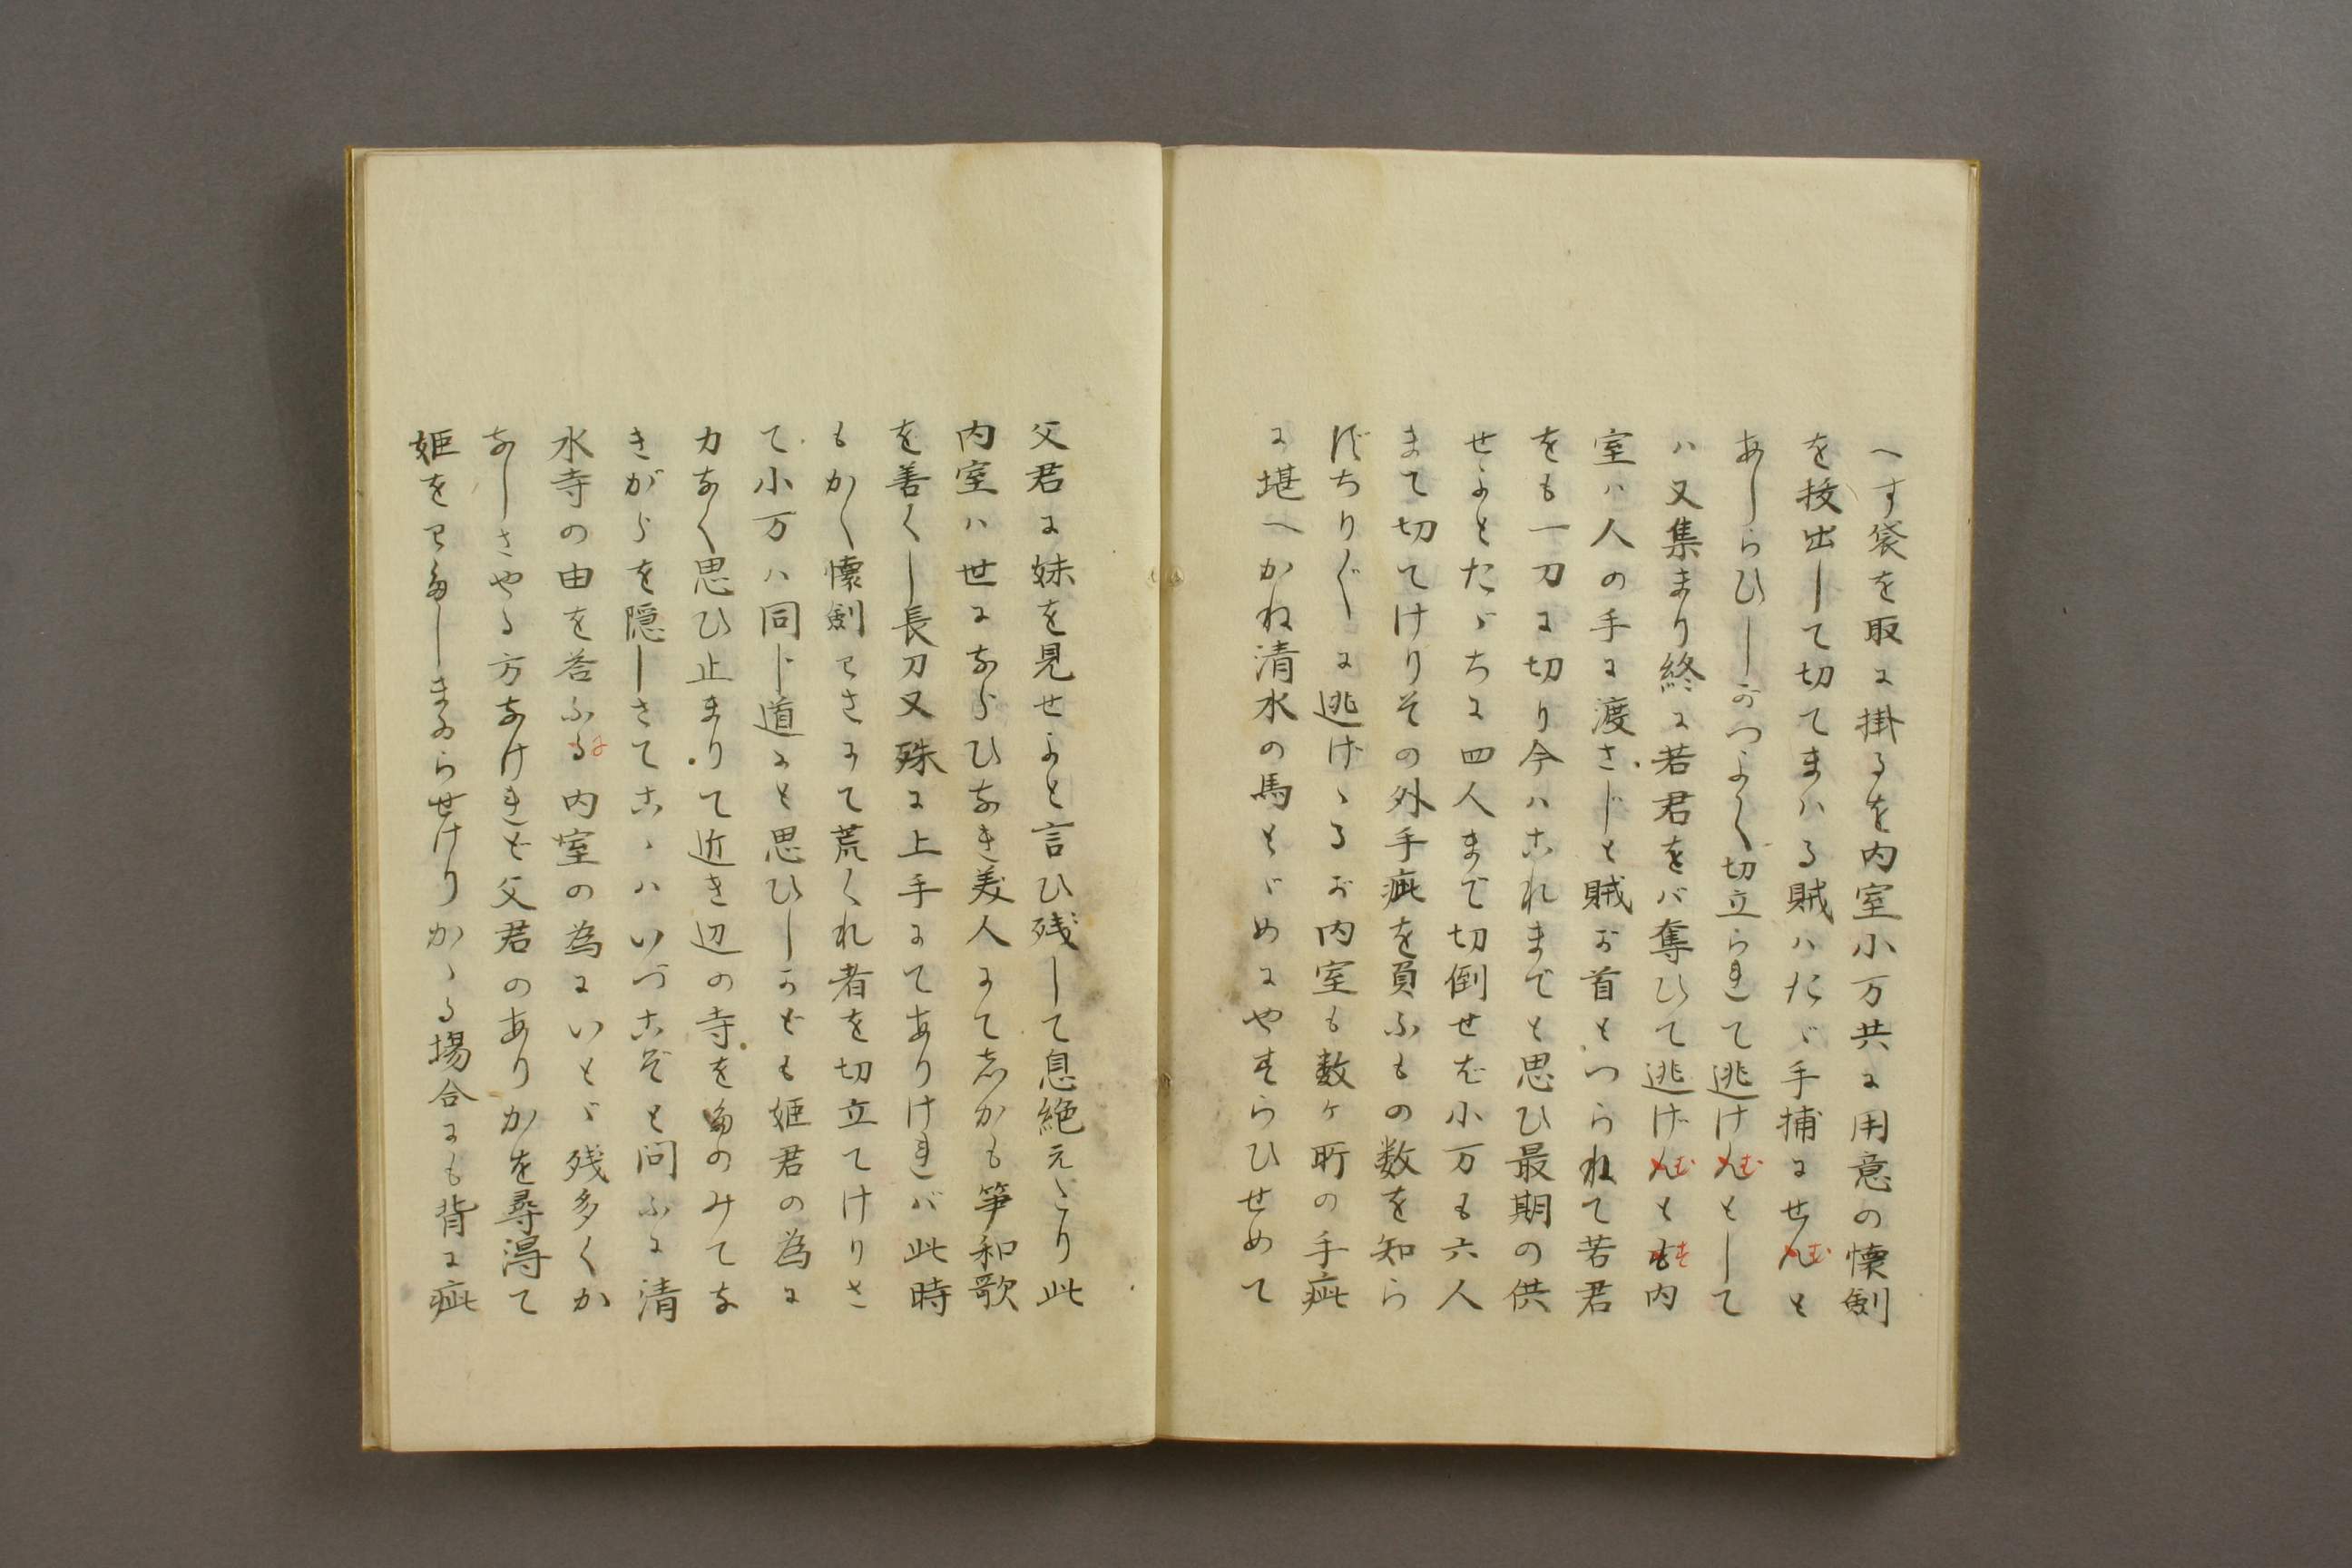 へす袋を取に掛るを内室小万共に用意の懐剣
を抜出して切てまハる賊ハたゞ手捕にせんむと
あしらひしがつよく切立られて逃けんむとして
ハ又集まり終に若君をバ奪ひて逃げんむともす内
室ハ人の手に渡さじと賊が首とつらねて若君
をも一刀に切り今ハこれまでと思ひ最期の供
せよとたゞちに四人まで切倒せを小万も六人
まて切てけりその外手疵を負ふもの数を知ら
ばちり〴〵に逃げゝるが内室も数ヶ所の手疵
に堪へかね清水の馬とゞめにやすらひせめて
父君に妹を見せよと言ひ残して息絶えゝり此
内室ハ世にならひなき美人にて志かも箏和歌
を善くし長刀又殊に上手にてありけれバ此時
もかく懐剣にさにて荒くれ者を切立てけりさ
て小万ハ同じ道にと思ひしかども姫君の為に
力なく思ひ止まりて近き辺の寺をたのみてな
きがらを隠しさてこゝハいづこぞと問ふに清
水寺の由を答ふるに内室の為にいとゞ残多くか
なしさやる方なけれど父君のありかを尋得て
姫をわたしまゐらせけりかゝる場合にも背に疵